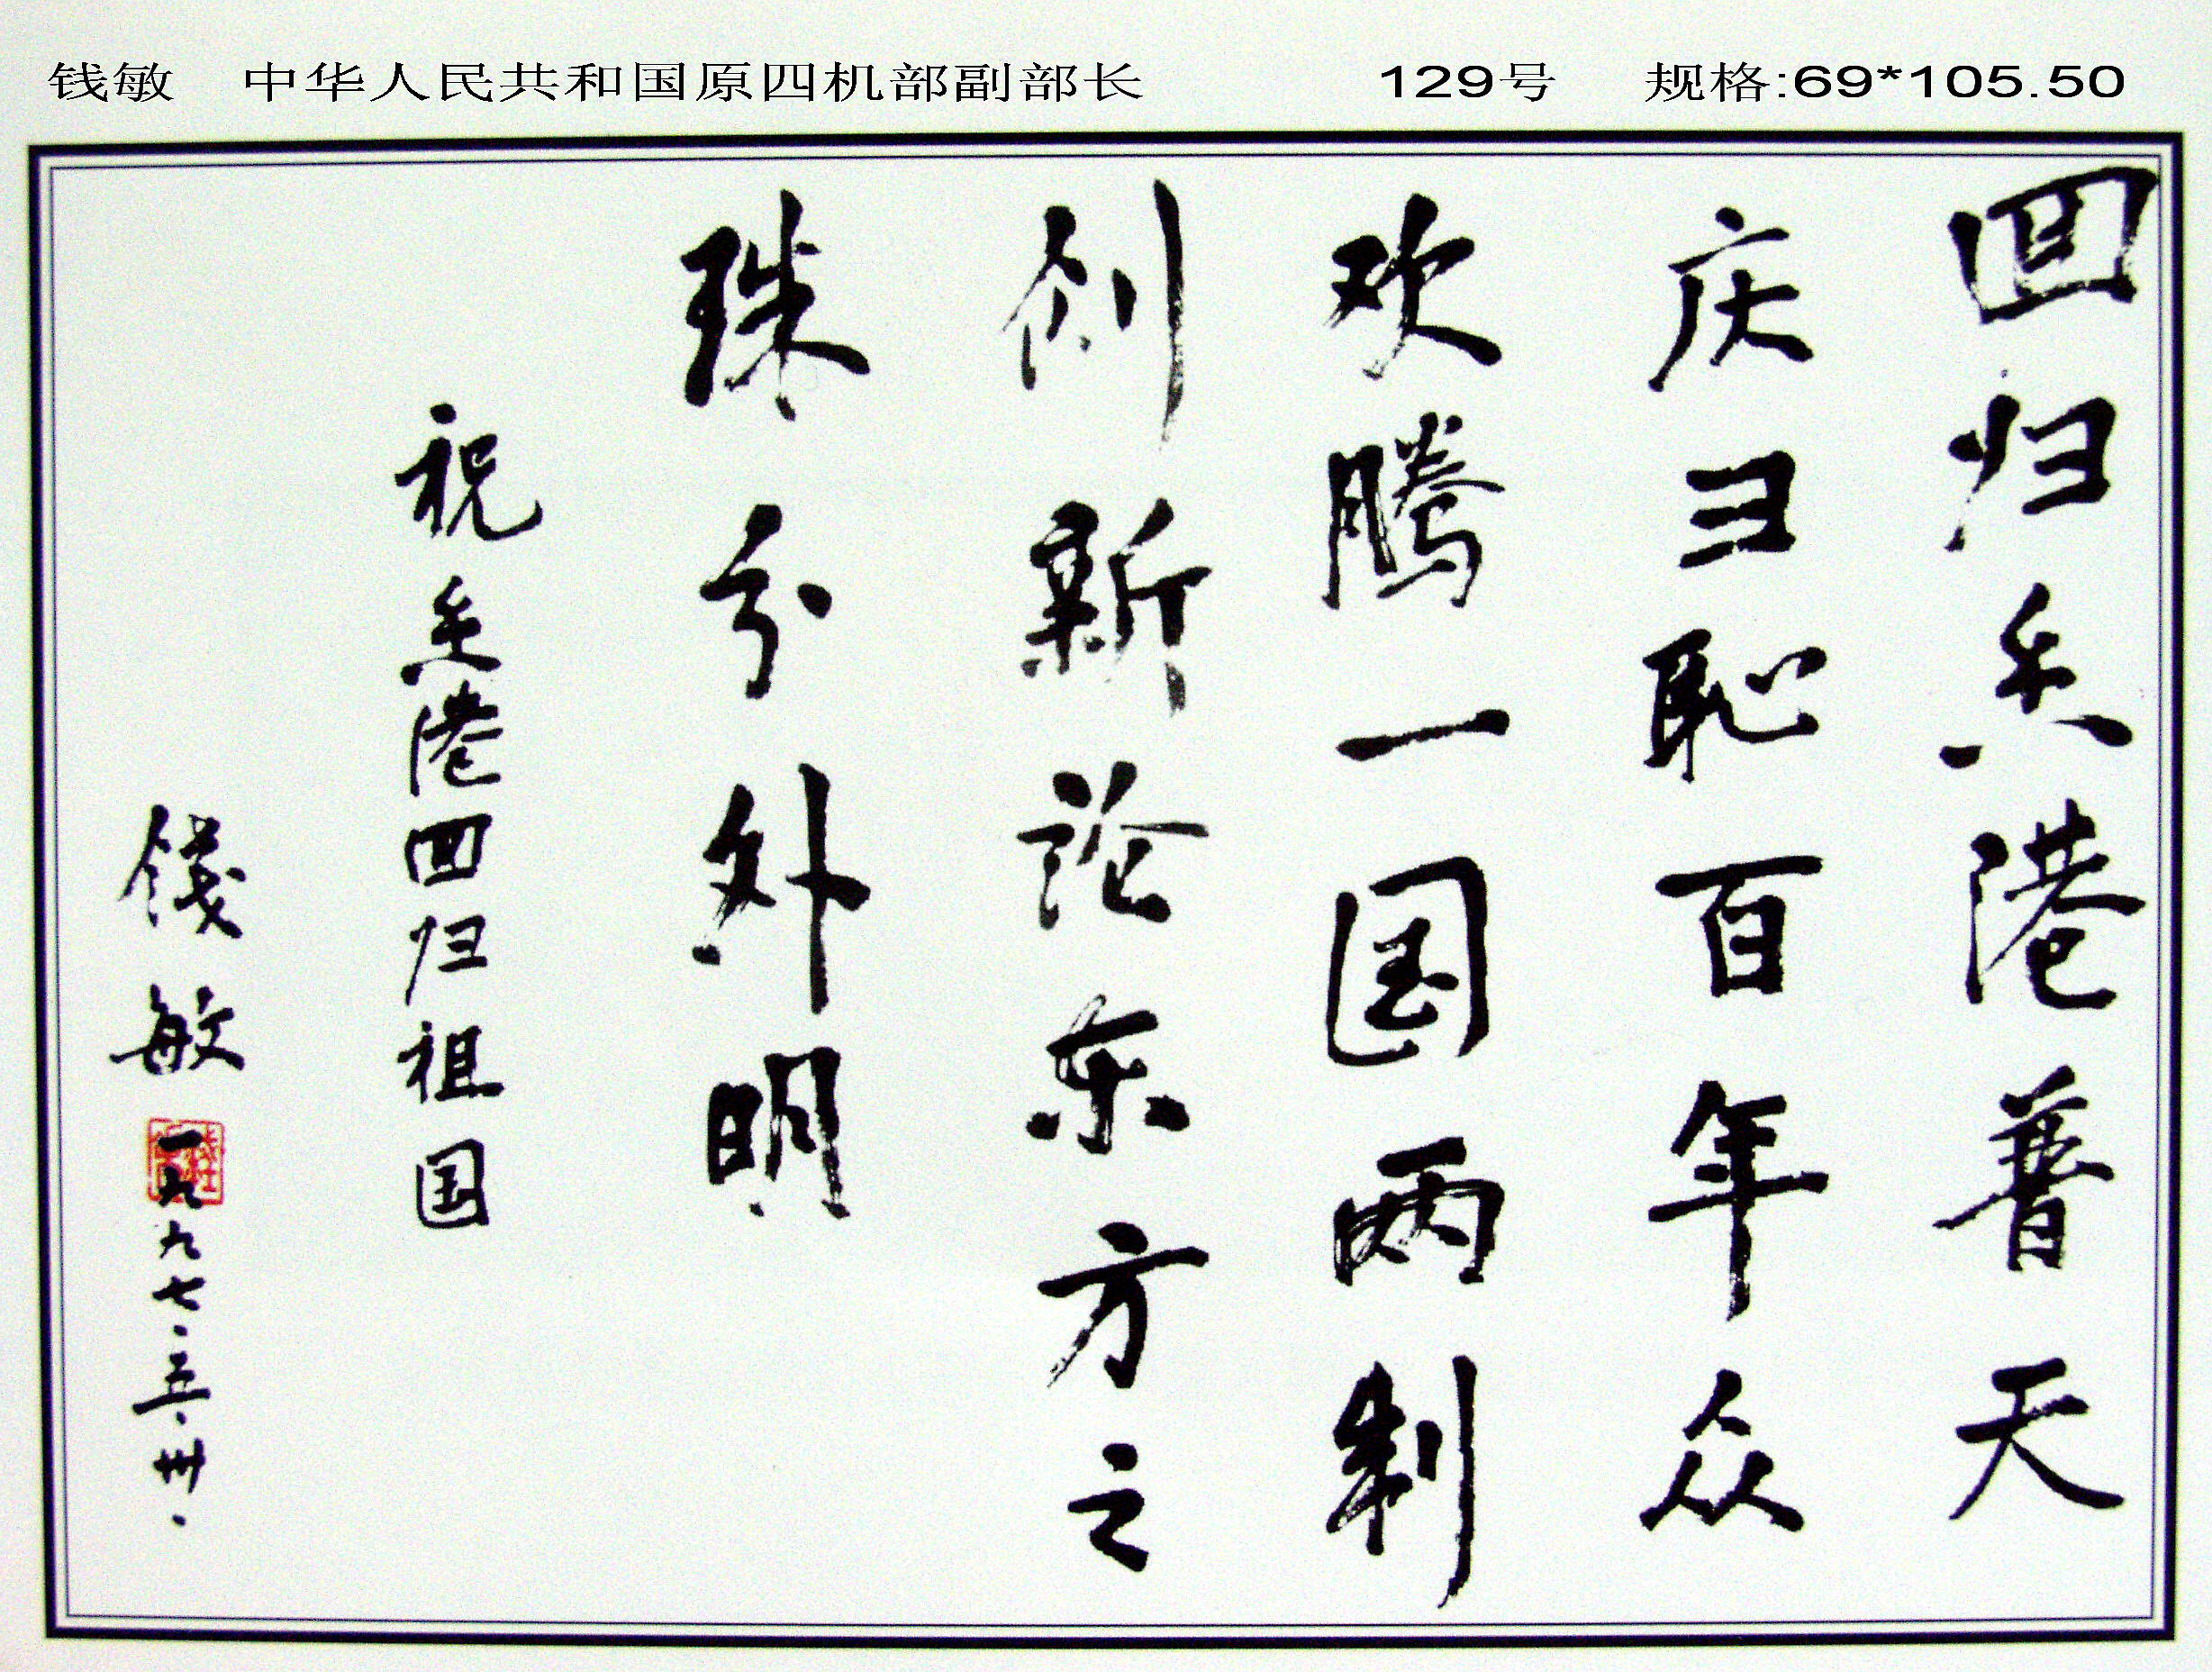 钱敏 中华人民共和国原四机部副部长 129号 规格:69*105.50
回归香港普天
庆彐耻百年众
欢腾一国两制
创新论东方之
珠分外明
祝香港回归祖国
錢敏 一九九七·五·卅·